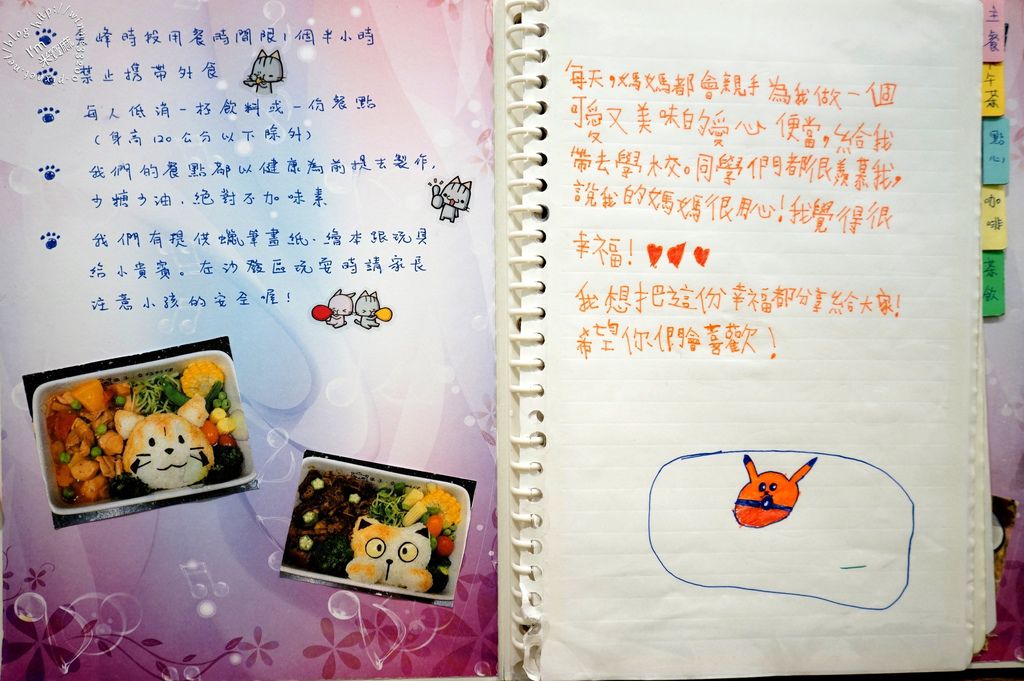 峰時段用餐時間限1個半小時
禁止攜帶外食
每人低消一杯飲料或一份餐點
(身高120公分以下除外)
我們的餐點都以健康為前提去製作,
少糖少油、絕對不加味素
我們有提供蠟筆畫紙、繪本跟玩具
給小貴賓。在沙發區玩耍時請家長
注意小孩的安全喔!
每天,媽媽都會親手為我做一個
可愛又美味的愛心便當,給我
帶去學校。同學們都很羨慕我,
說我的媽媽很用心!我覺得很
幸福!
我想把這份幸福都分享給大家!
希望你們會喜歡!
主餐
午茶
點心
咖啡
茶飲